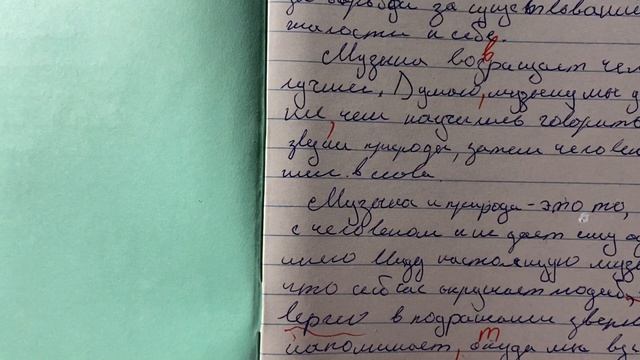 за существование
жалости к себе.
Музыка возвращает чел
лучшее. Думаю, музыку мы у
ше, чем научились говорить
звуки природы, затем челове
ние в слова
Музыка и природа - это то,
с человеком и не дает ему о
Ищу настоящую муз
что сейчас окружает людей,
в подражании зверю
напоминает, откуда мы вз